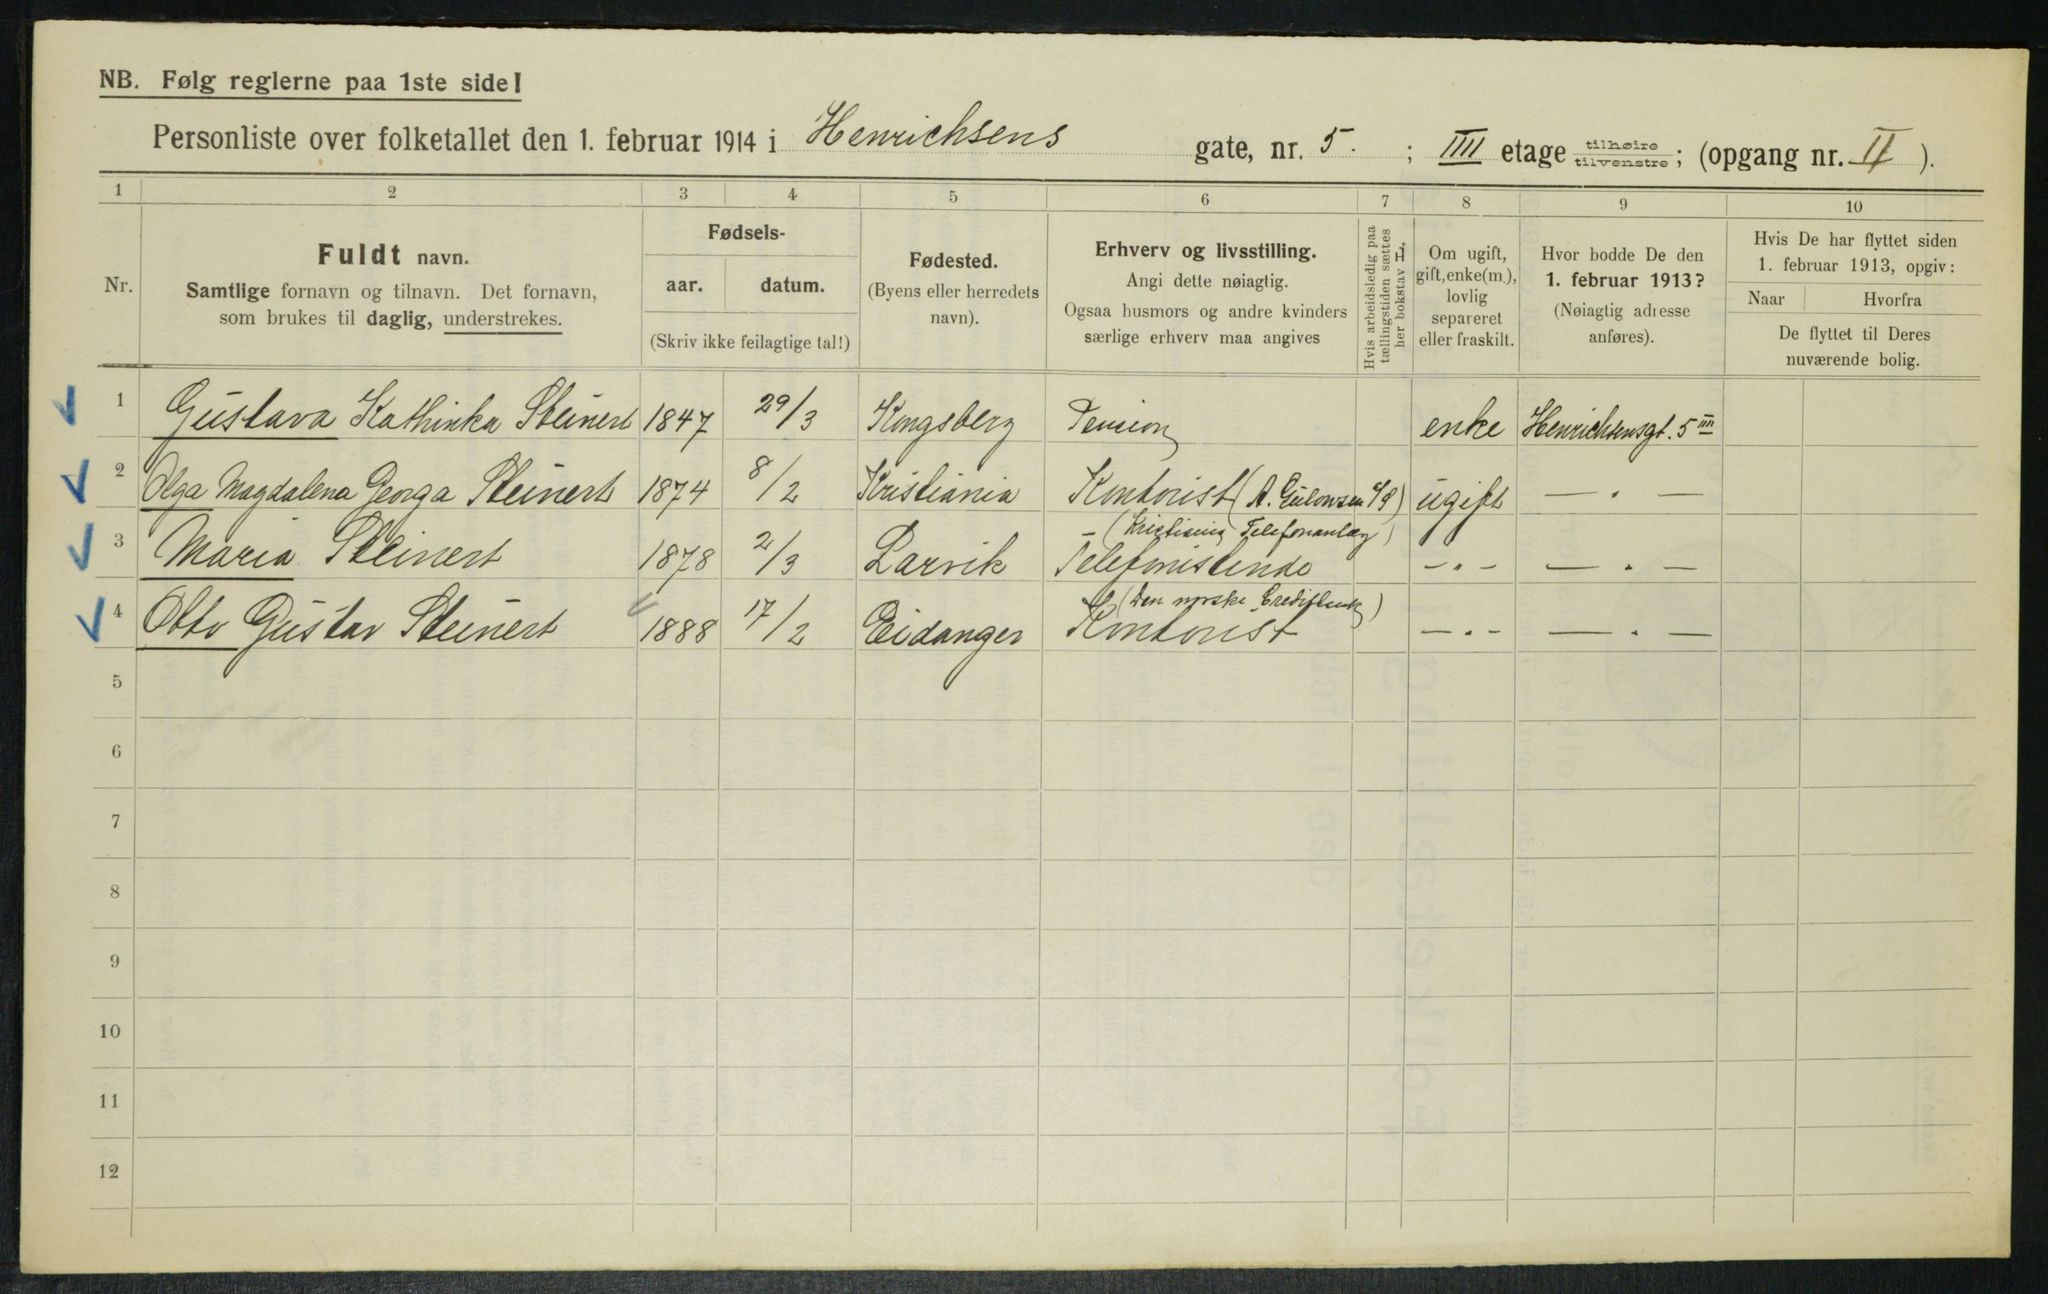 NB. Følg reglerne paa 1ste side!
Personliste over folketallet den 1. februar 1914 i Henrichsens gate, nr. 5. ; IIII etage tilhøire tilvenstre ; (opgang nr. II ).
1 2 3 4 5 6 7 8 9 10
Nr.
Fuldt navn.
Samtlige fornavn og tilnavn. Det fornavn,
som brukes til daglig, understrekes.
Fødsels-
aar. datum.
(Skriv ikke feilagtige tal!)
Fødested.
(Byens eller herredets
navn).
Erhverv og livsstilling.
Angi dette nøiagtig.
Ogsaa husmors og andre kvinders
særlige erhverv maa angives
Hvis arbeidsledig paa
tællingstiden sættes
her bokstav L.
Om ugift,
gift, enke(m.),
lovlig
separeret
eller fraskilt.
Hvor bodde De den
1. februar 1913?
(Nøiagtig adresse
anføres).
Hvis De har flyttet siden
1. februar 1913, opgiv:
Naar Hvorfra
De flyttet til Deres
nuværende bolig.
1 Gustava Kathinka Steinert 1847 29/3 Kongsberg Pension enke Henrichsensgt. 5 IIII
2 Olga Magdalena Georga Steinert 1874 8/2 Kristiania Kontorist (A. ugift — " —
(Kristiania Telefonanlæg)
3 Maria Steinert 1878 2/3 Larvik Telefonistinde — " — — " —
(Den norske Creditbank)
4 Otto Gustav Steinert 1888 17/2 Eidanger Kontorist — " — — " —
5
6
7
8
9
10
11
12